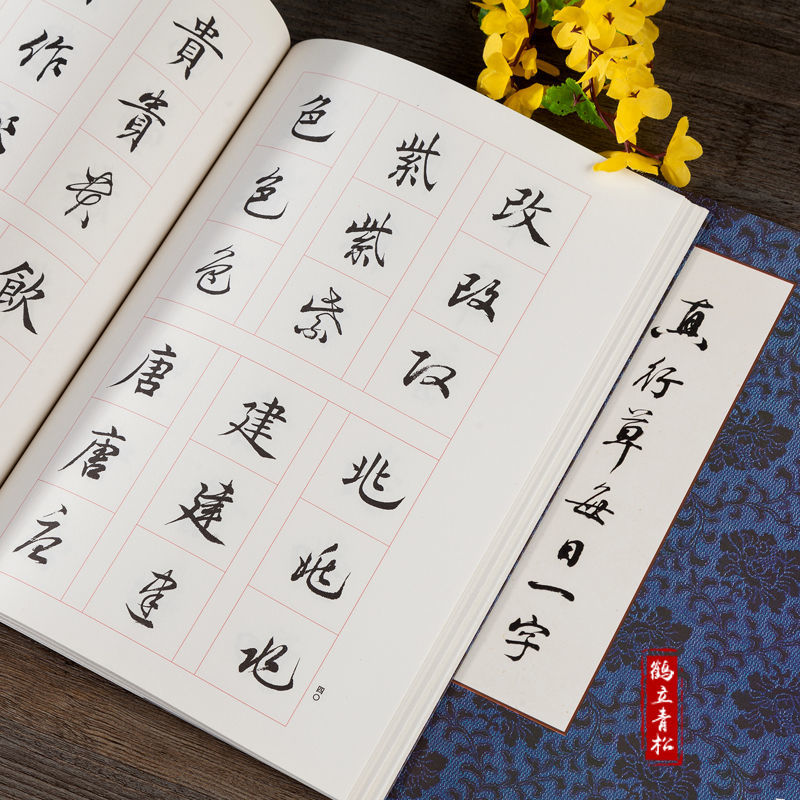 改改改
紫紫紫
色色色
北北北
建建建
唐唐唐
四〇
貴貴貴
作
飲
真行草每日一字
鹤立青松